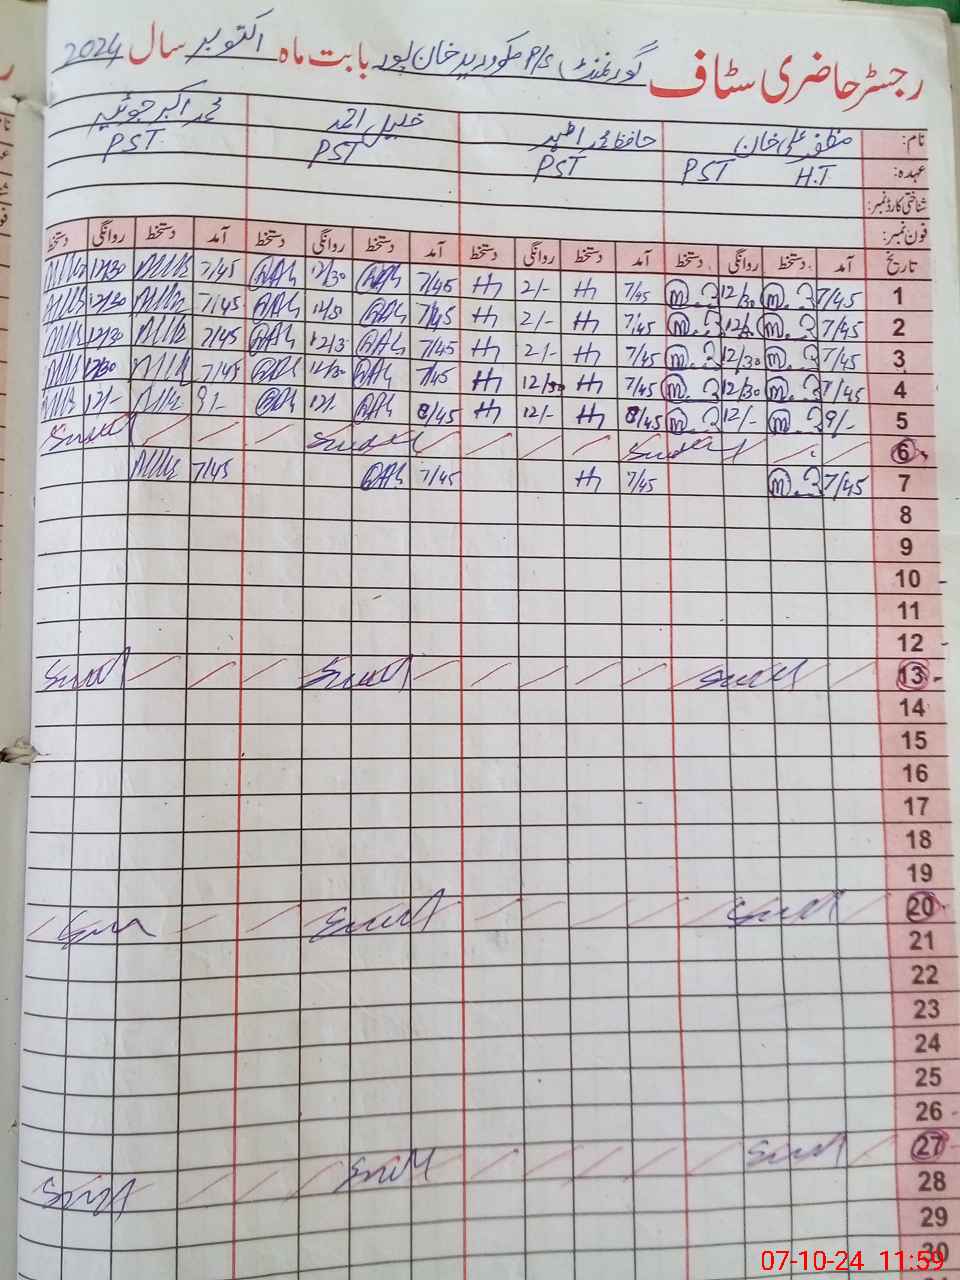 رجسٹر حاضری سٹاف گورنمنٹ P/S بابت ماہ اکتوبر سال 2024
نام: مظفر علی خان حافظ محمد اظہر خلیل احمد محمد اکبر جوئیہ
عہدہ: H.T PST PST PST PST
شناختی کارڈ نمبر:
فون نمبر:
تاریخ آمد دستخط روانگی دستخط آمد دستخط روانگی دستخط آمد دستخط روانگی دستخط آمد دستخط روانگی دستخط
1 7/45 12/30 7/45 H 2/- H 7/45 12/30 7/45 12/30
2 7/45 7/45 H 2/- H 7/45 7/45 12/30
3 7/45 12/30 7/45 H 2/- H 7/45 7/45 12/30
4 7/45 12/30 7/45 H 12/30 H 7/45 12/30 7/45 12/30
5 9/- 12/- 8/45 H 12/- H 8/45 12/- 9/- 12/-
6 Sunday Sunday Sunday
7 7/45 7/45 H 7/45 7/45
8
9
10
11
12
13 Sunday Sunday Sunday
14
15
16
17
18
19
20 Sunday Sunday Sunday
21
22
23
24
25
26
27 Sunday Sunday Sunday
28
29
30
07-10-24 11:59